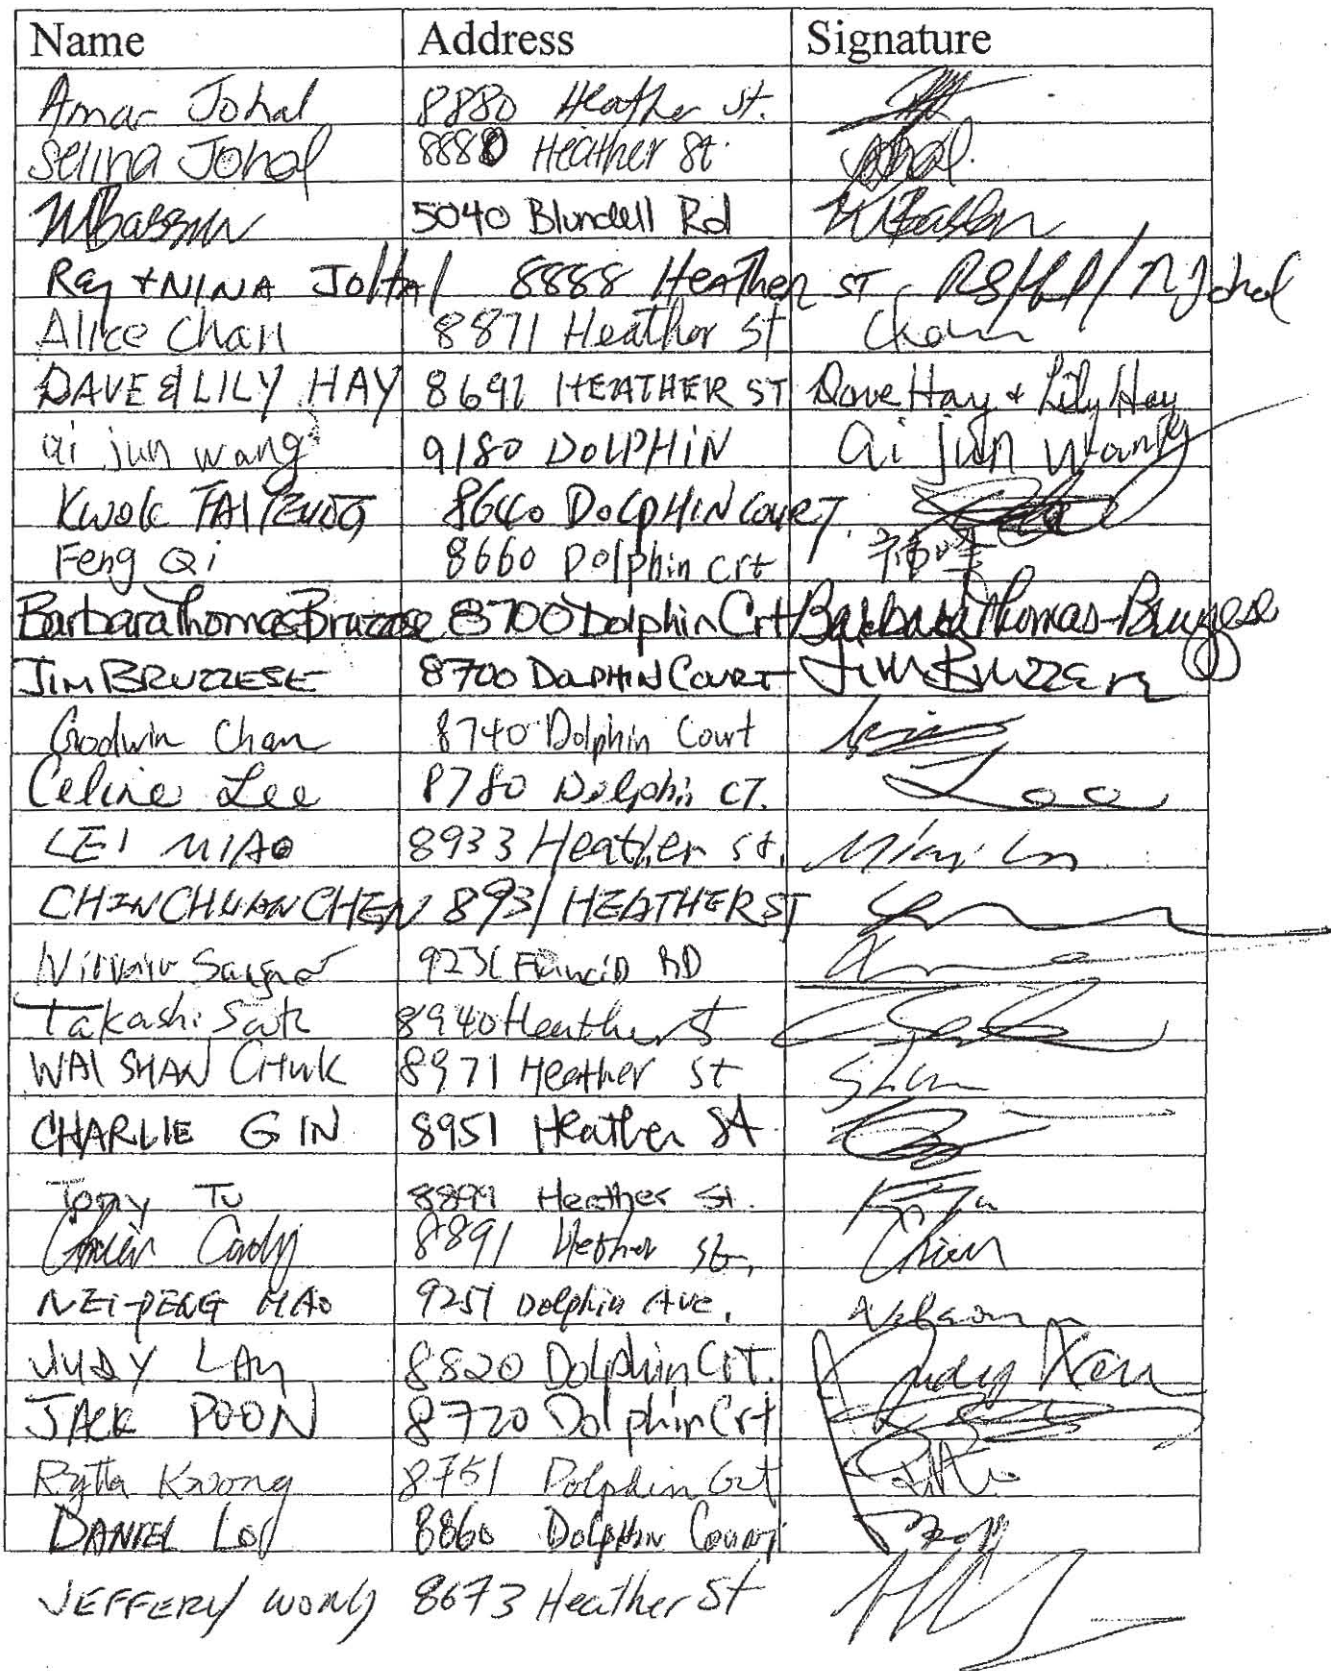 Name Address Signature
Amar Johal 8880 Heather St.
Selina Johal 8880 Heather St. Johal
MBassun 5040 Blundell Rd
Ray + NINA JOHAL 8888 HEATHER ST NJohal
Alice Chan 8871 Heather St Chan
DAVE & LILY HAY 8691 HEATHER ST Dave Hay + Lily Hay
Qi jun wang 9180 DOLPHIN Qi jun wang
KWOK TAI 8640 DOLPHIN COURT.
Feng Qi 8660 Dolphin crt
Barbara Thomas-Bruzzese 8700 Dolphin Crt Barbara Thomas-Bruzzese
JIM BRUZZESE 8700 DOLPHIN COURT Jim Bruzzese
Godwin Chan 8740 Dolphin Court
Celine Lee 8780 Dolphin CT. Lee
LEI MIAO 8933 Heather st.
CHIN CHUAN CHEN 8931 HEATHER ST
RD
Takashi 8940 Heather St
WAI SHAN CHUK 8971 Heather St Shan
CHARLIE GIN 8951 Heather St
Tony Tu 8899 Heather St.
8891 Hether St.
NEI-PENG HAO 9251 Dolphin Ave.
JUDY 8820 Dolphin Crt. Judy
JACK POON 8720 Dolphin Crt
Kwong 8751 Dolphin Crt
DANIEL 8860 Dolphin Court
JEFFERY WONG 8673 Heather St